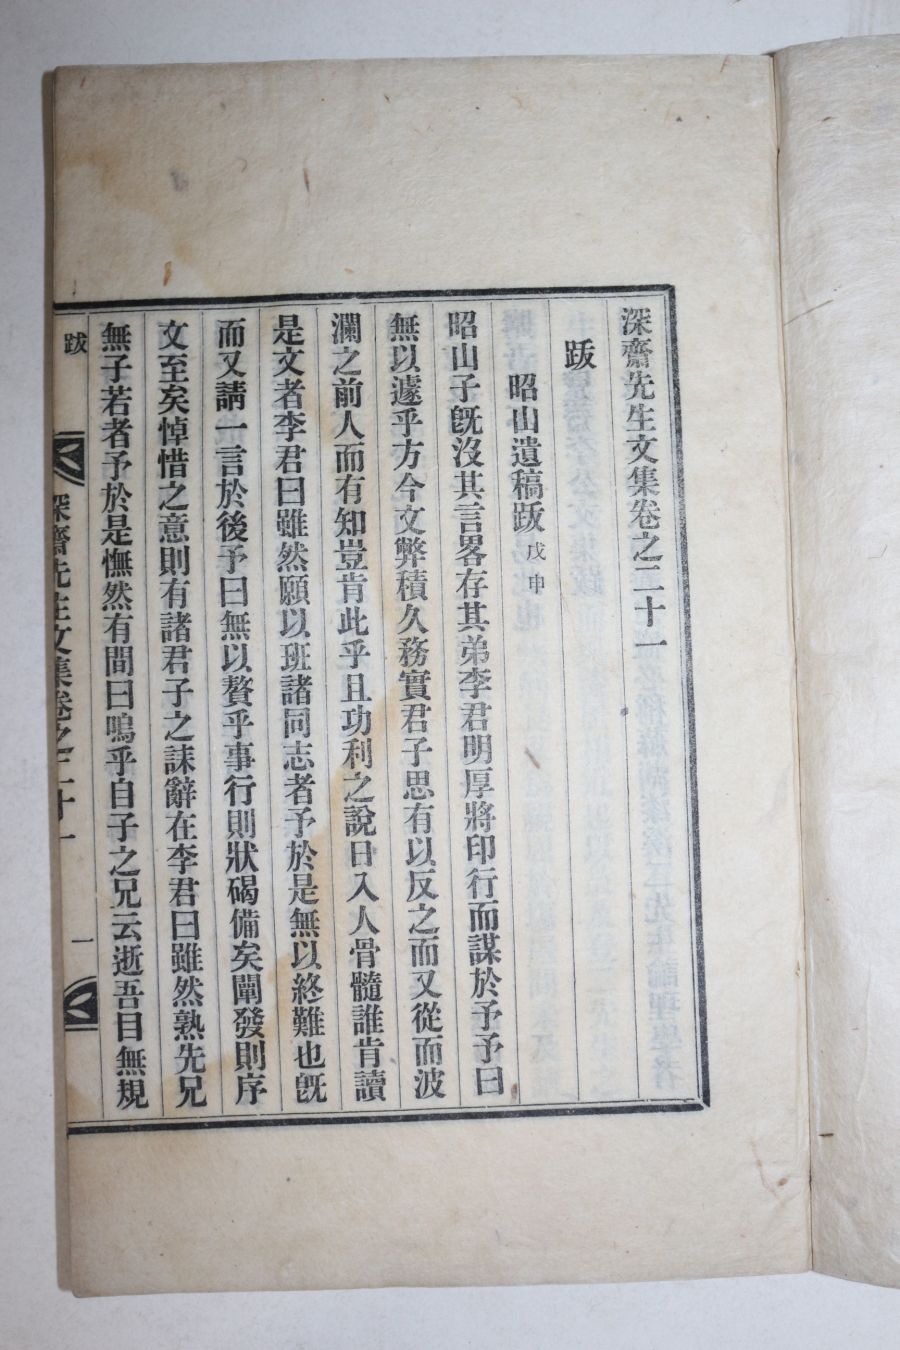 深齋先生文集卷之二十一
跋
昭山遺稿跋 戊申
昭山子旣沒其言畧存其弟李君明厚將印行而謀於予予曰
無以遽乎方今文弊積久務實君子思有以反之而又從而波
瀾之前人而有知豈肯此乎且功利之說日入人骨髓誰肯讀
是文者李君曰雖然願以班諸同志者予於是無以終難也旣
而又請一言於後予曰無以贅乎事行則狀碣備矣闡發則序
文至矣悼惜之意則有諸君子之誄辭在李君曰雖然孰先兄
無子若者予於是憮然有間曰嗚乎自子之兄云逝吾目無規
跋 深齋先生文集卷之二十一 一